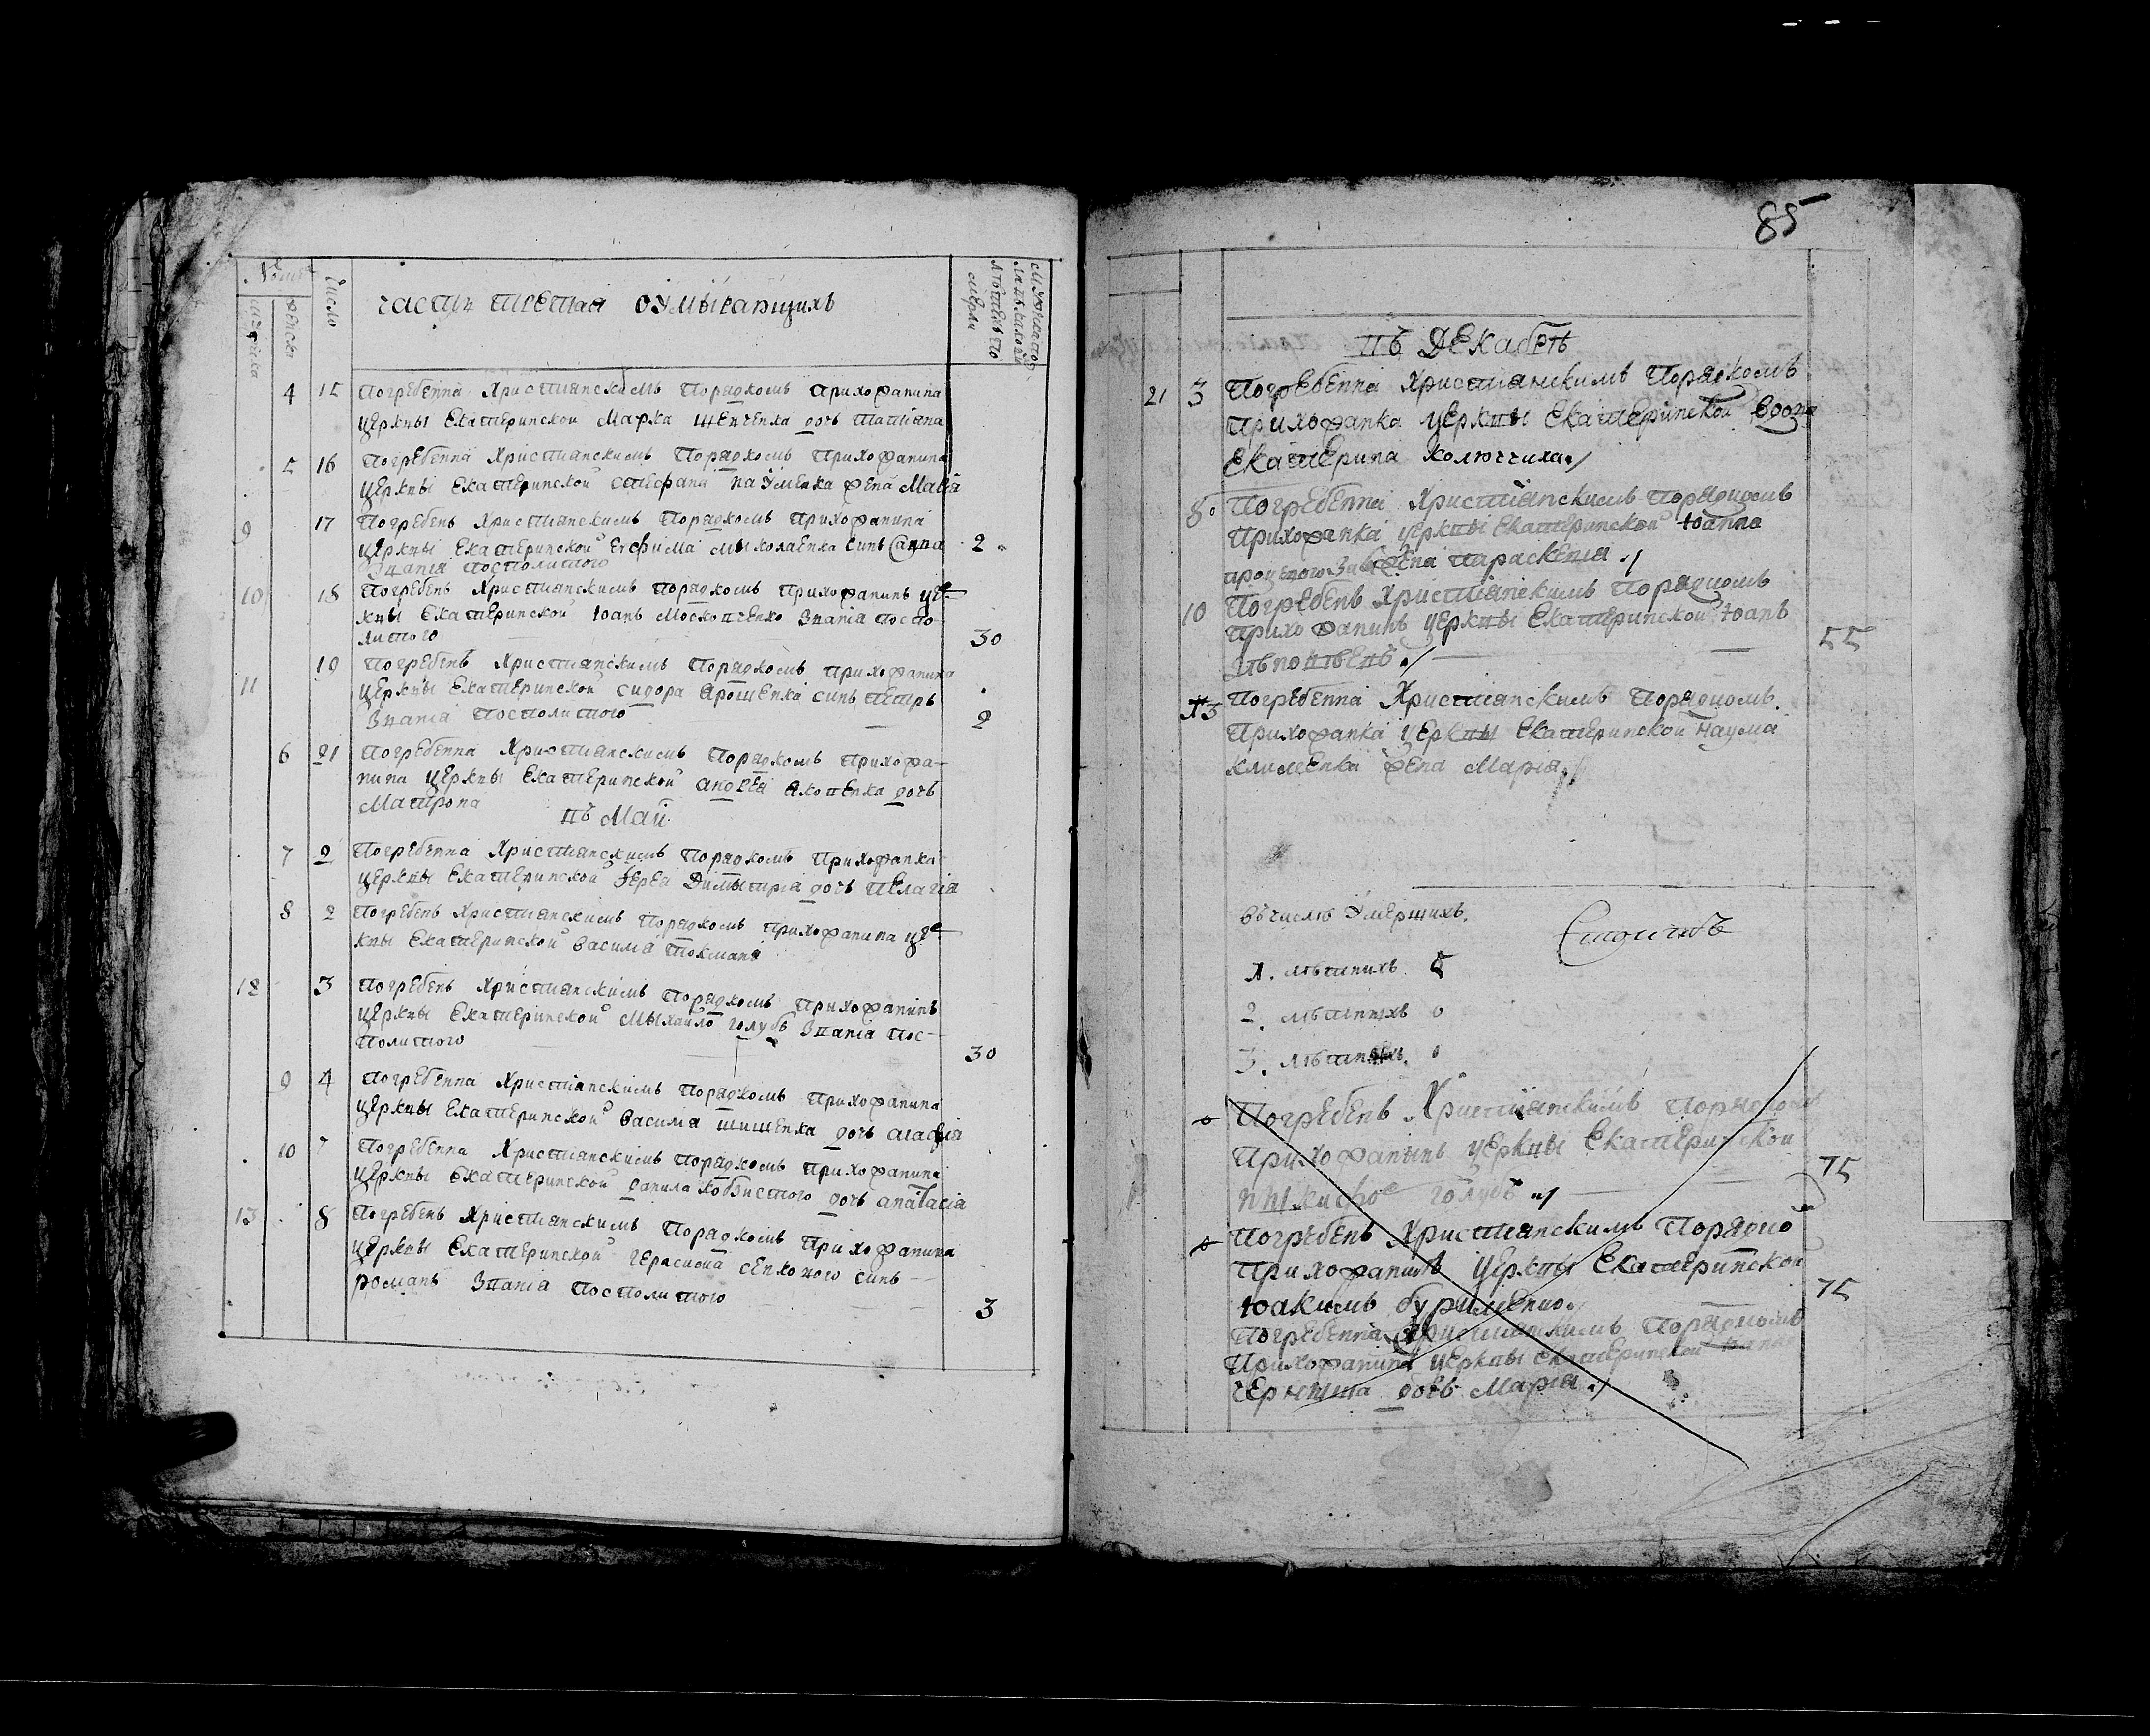 Число
часть третая о умырающихъ
4 15 Погребенна Христианскимъ Порядкомъ Прихожанина
церквы Екатеринской Марка Шевченка дочъ Татиана
5 16 Погребенна Христианскимъ Порядкомъ Прихожанина
церквы Екатеринской Стефана Науменка жена Мария
9 17 Погребенъ Христианскимъ Порядкомъ Прихожанина
церквы Екатеринской Евфима Мыколаенка синъ Савва 2
Звания посполитого
10 18 Погребенъ Христианскимъ Порядкомъ Прихожанинъ цер
квы Екатеринской Iоанъ Московченко Звания поспо
литого 30
11 19 Погребенъ Христианскимъ Порядкомъ Прихожанина
церквы Екатеринской Сидора Ярошенка синъ Петръ
Звания посполитого 2
6 21 Погребенна Христианскимъ Порядкомъ Прихожа-
нина церквы Екатеринской Андрея Яковенка дочъ
Матрона
въ Маи
7 2 Погребенна Христианскимъ Порядкомъ Прихожанка
церквы Екатеринской Iерея Димытрия дочъ Пелагия
8 2 Погребенъ Христианскимъ Порядкомъ Прихожанина цер
квы Екатеринской Василя
12 3 Погребенъ Христианскимъ Порядкомъ Прихожанинъ
церквы Екатеринской Мыхайло Голубъ Звания пос-
политого 30
9 4 Погребенна Христианскимъ Порядкомъ Прихожанина
церквы Екатеринской Василя Шишенка дочъ Агафия
10 7 Погребенна Христианскимъ Порядкомъ Прихожанина
церквы Екатеринской Данила Кобзистого дочъ Анатасiа
13 8 Погребенъ Христианскимъ Порядкомъ Прихожанина
церквы Екатеринской Герасима Сенкового синъ
Романъ Звания посполитого 3
85
въ Декабрѣ
21 3 Погребенна Христианскимъ Порядкомъ
Прихожанка церквы Екатеринской вдова
Екатерина Колюччиха
8 Погребенна Христианскимъ Порядкомъ
Прихожанка церквы Екатеринской Iоанна
жена Параскевия
10 Погребенъ Христианскимъ Порядкомъ
Прихожанинъ церквы Екатеринской Iоанъ 55
13 Погребенна Христианскимъ Порядкомъ
Прихожанка церквы Екатеринской Наума
Клименка жена Мария
Въ числѣ Умершихъ
1. лѣтнихъ 5
2. лѣтнихъ 0
3. лѣтнихъ 0
Погребенъ Христианскимъ Порядкомъ
Прихожанинъ церквы Екатеринской
Голубъ 75
Погребенъ Христианскимъ Порядко
Прихожанинъ церквы Екатеринской
Iоакимъ Бурименко 75
Погребенна Христианскимъ Порядкомъ
Прихожанина церквы Екатеринской
дочъ Мария